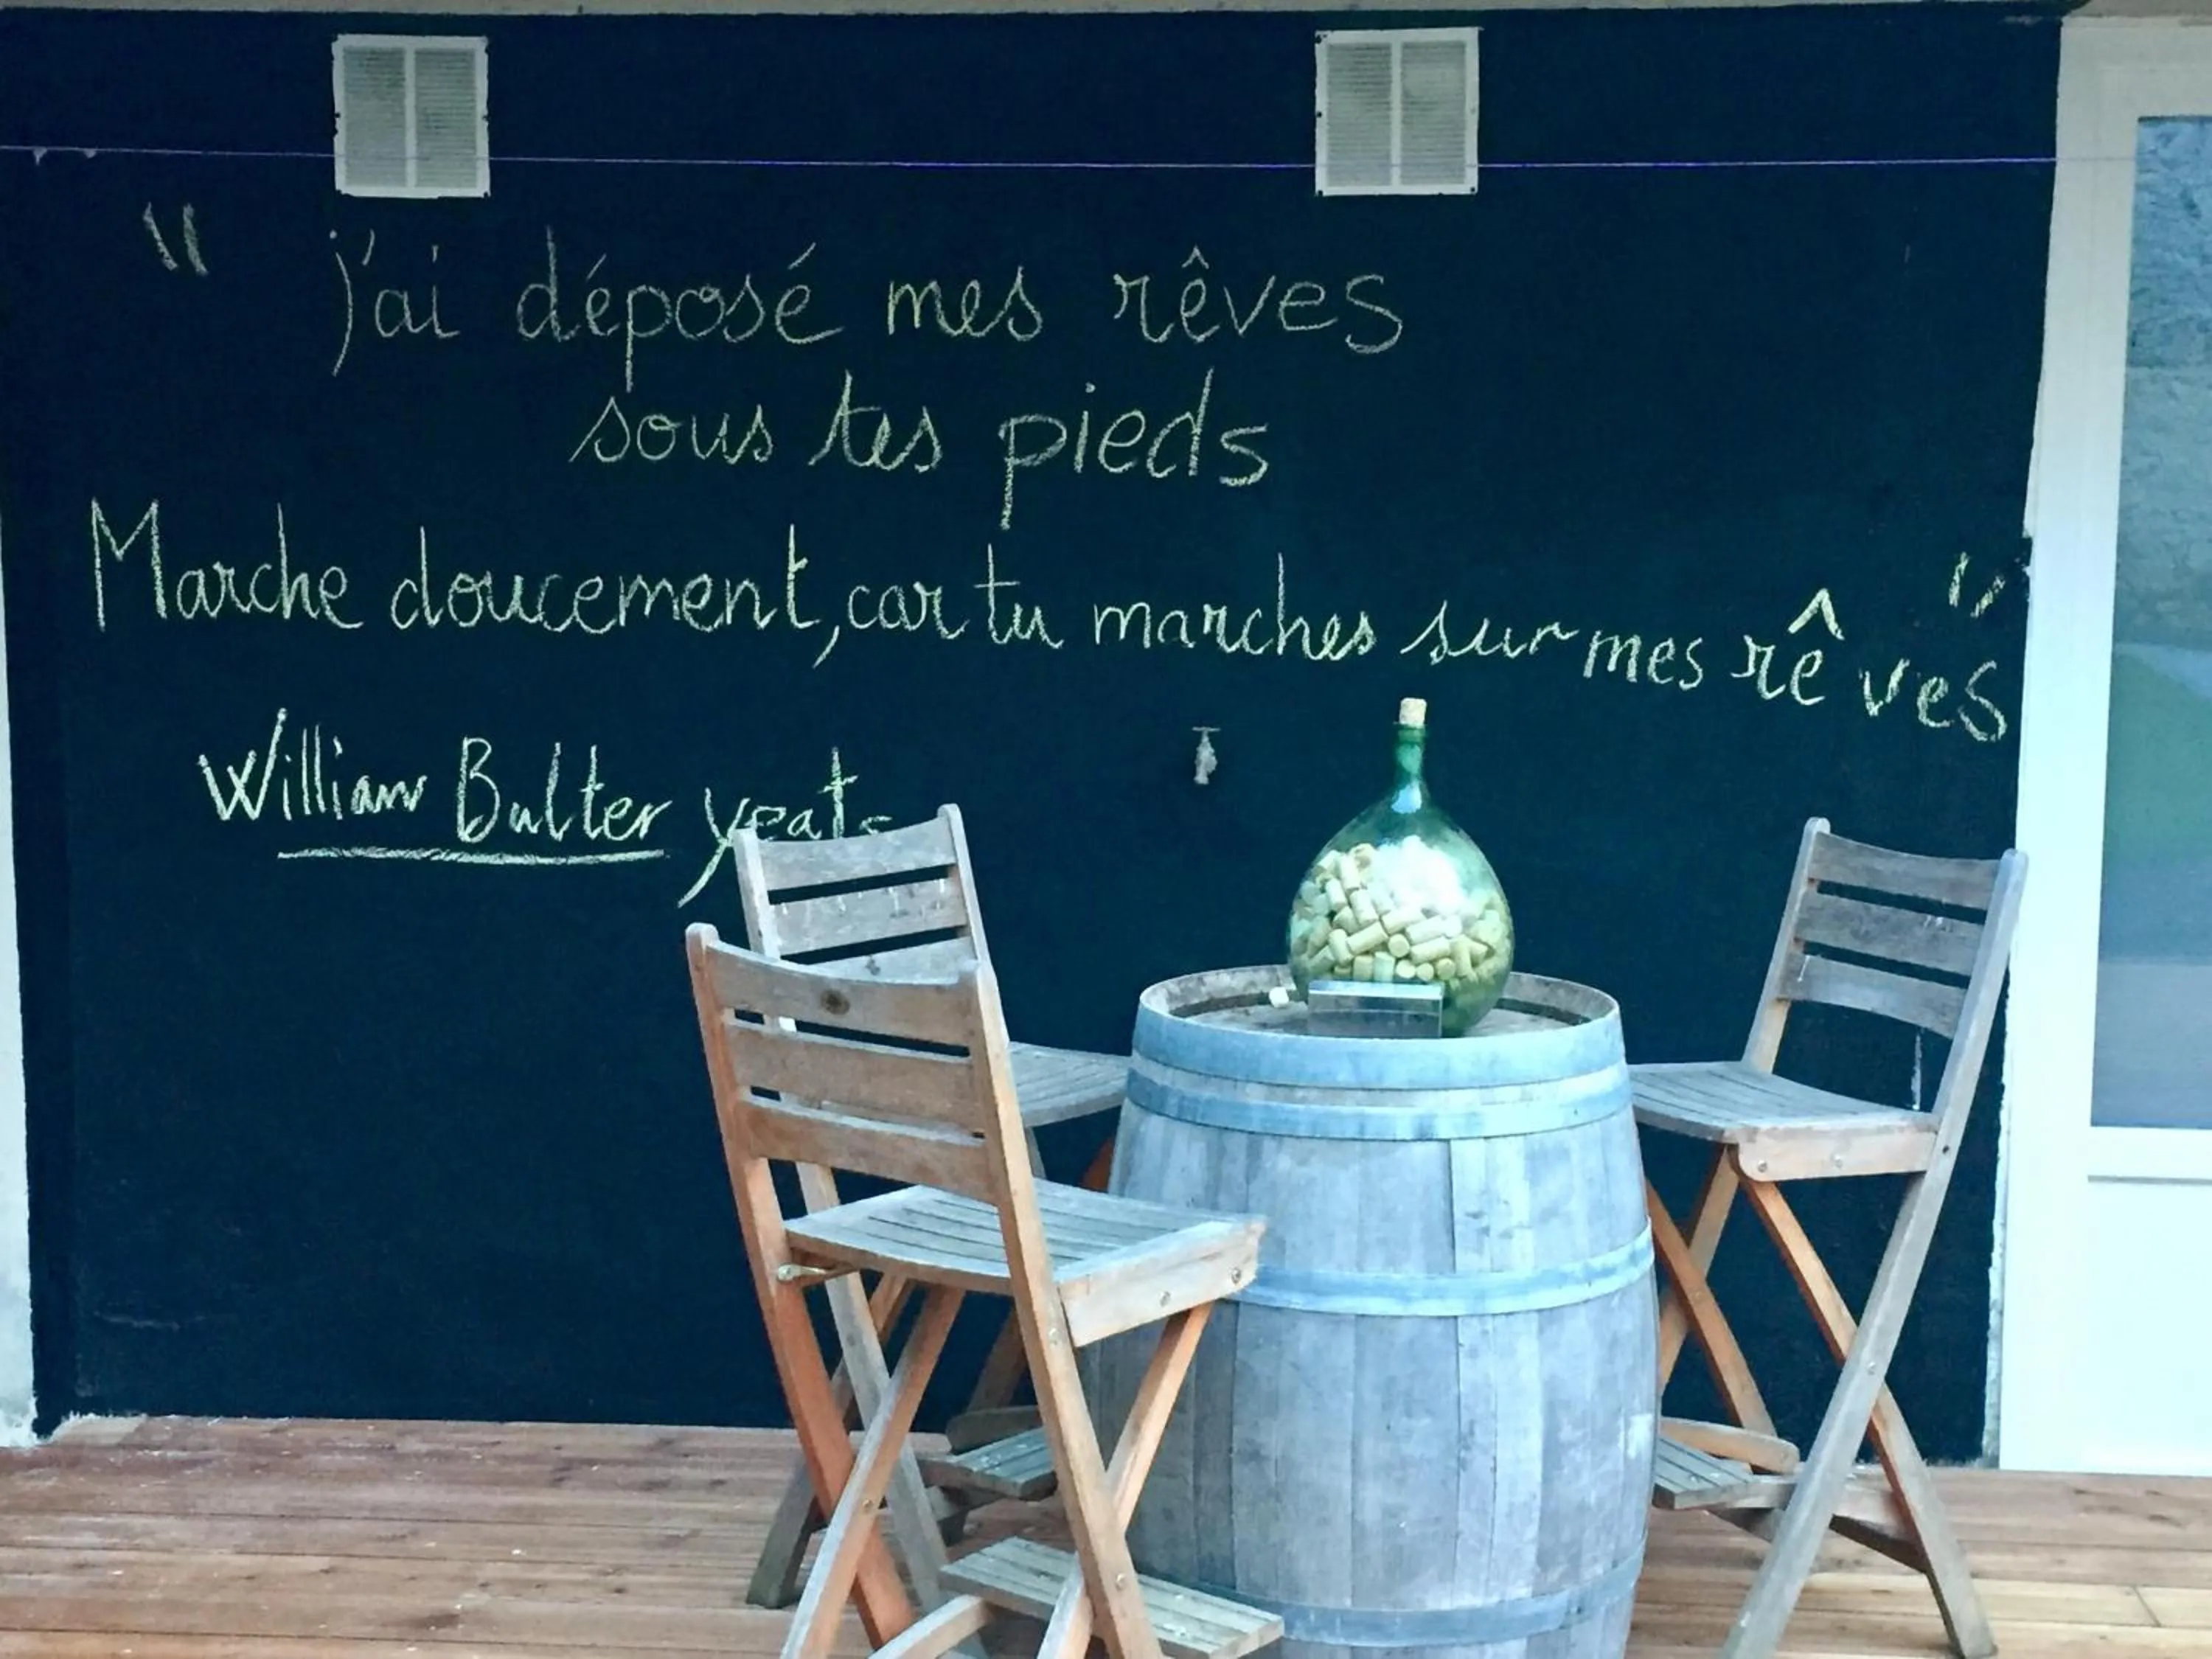 " j'ai déposé mes rêves
sous tes pieds
Marche doucement, car tu marches sur mes rêves "
William Bulter yeats